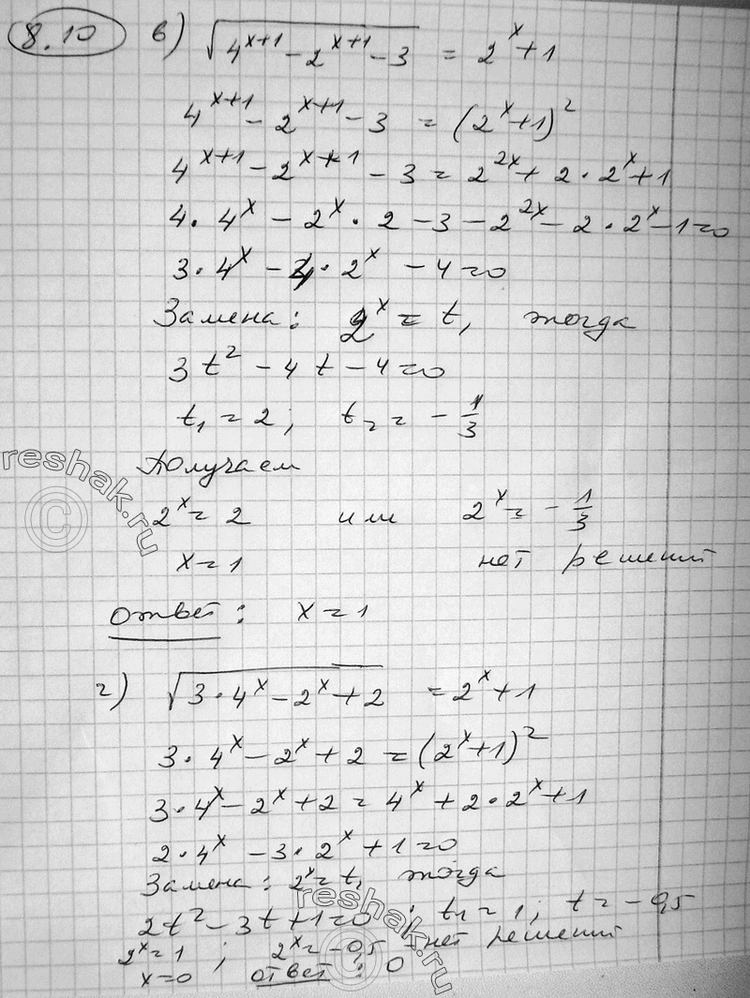 8.10 в) √(4^(x+1) - 2^(x+1) - 3) = 2^x + 1
4^(x+1) - 2^(x+1) - 3 = (2^x + 1)^2
4^(x+1) - 2^(x+1) - 3 = 2^(2x) + 2 · 2^x + 1
4 · 4^x - 2^x · 2 - 3 - 2^(2x) - 2 · 2^x - 1 = 0
3 · 4^x - 4 · 2^x - 4 = 0
Замена: 2^x = t, тогда
3t^2 - 4t - 4 = 0
t₁ = 2; t₂ = - 1/3
Получаем
2^x = 2 или 2^x = - 1/3
x = 1 нет решений
Ответ: x = 1
г) √(3 · 4^x - 2^x + 2) = 2^x + 1
3 · 4^x - 2^x + 2 = (2^x + 1)^2
3 · 4^x - 2^x + 2 = 4^x + 2 · 2^x + 1
2 · 4^x - 3 · 2^x + 1 = 0
Замена: 2^x = t, тогда
2t^2 - 3t + 1 = 0; t₁ = 1; t = - 0,5
2^x = 1; 2^x = - 0,5 - нет решений
x = 0 Ответ: 0
© reshak.ru
© reshak.ru